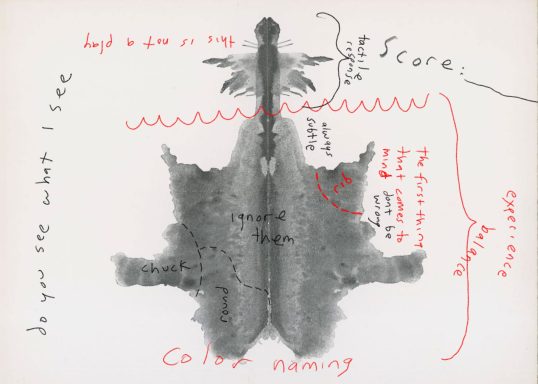 this is not a play
tactile
response
Score:
do you see what I see
always
subtle
rib
The first thing
that comes to
mind
don't be
wrong
experience
balance
ignore
them
chuck
round
Color naming